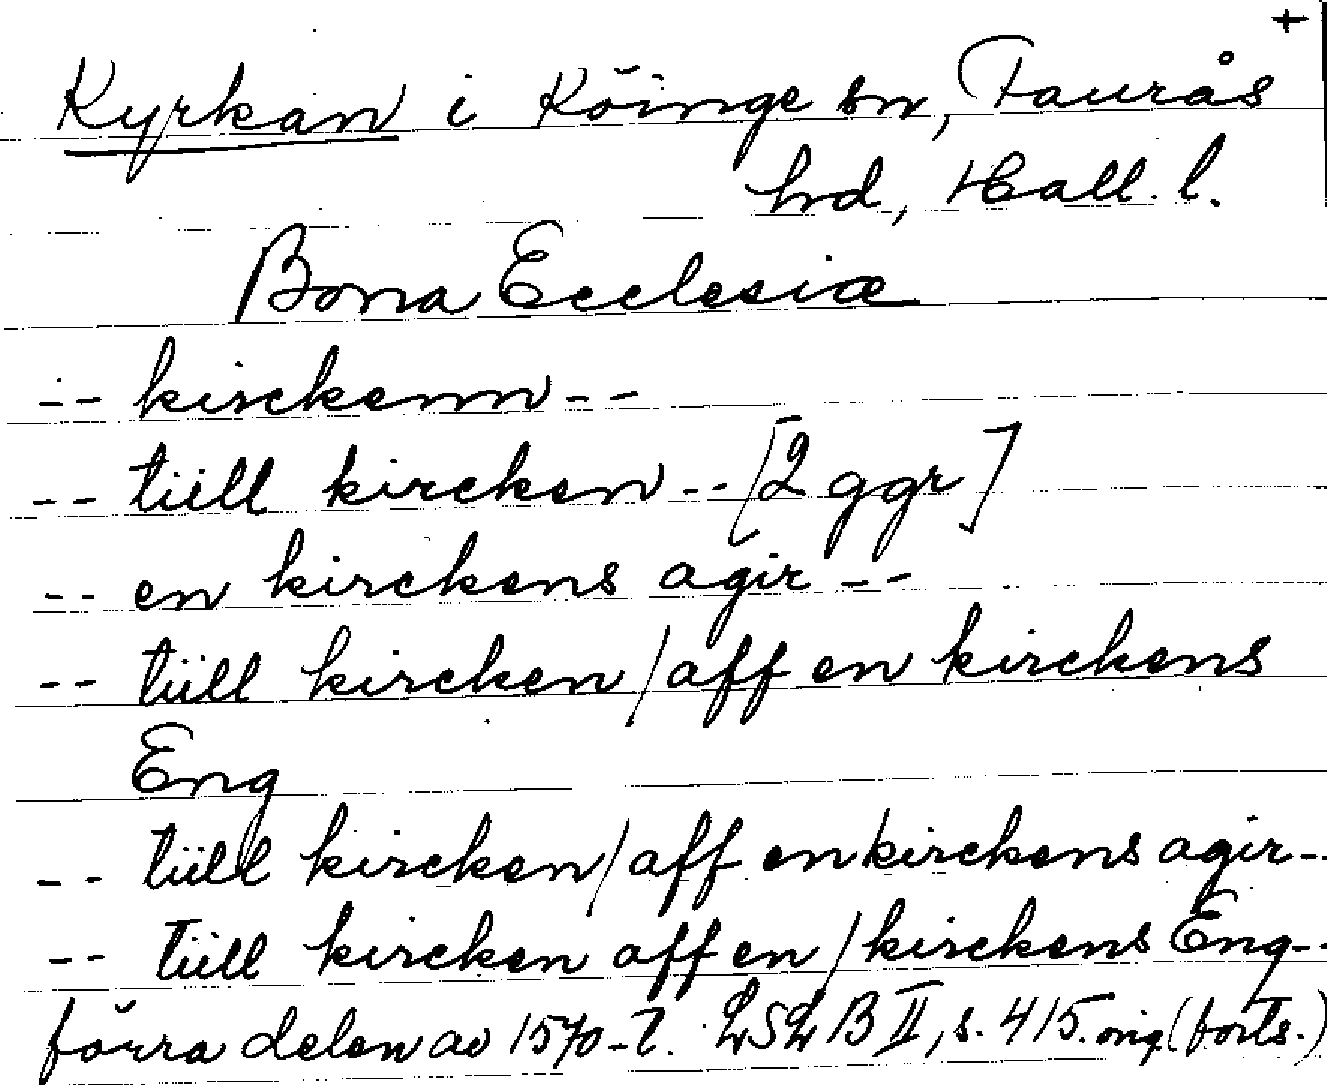 +
Kyrkan i Köinge sn, Faurås
hrd, Hall. l.
Bona Ecclesiæ
-- kirckenn --
-- tiill kircken -- [2 ggr]
-- en kirckens agir --
-- tiill kircken / aff en kirckens
Eng
-- tiill kircken / aff en kirckens agir --
-- Tiill kircken aff en / kirckens Eng --
förra delen av 1570-t. LSL B II, s. 415. orig. (forts.)